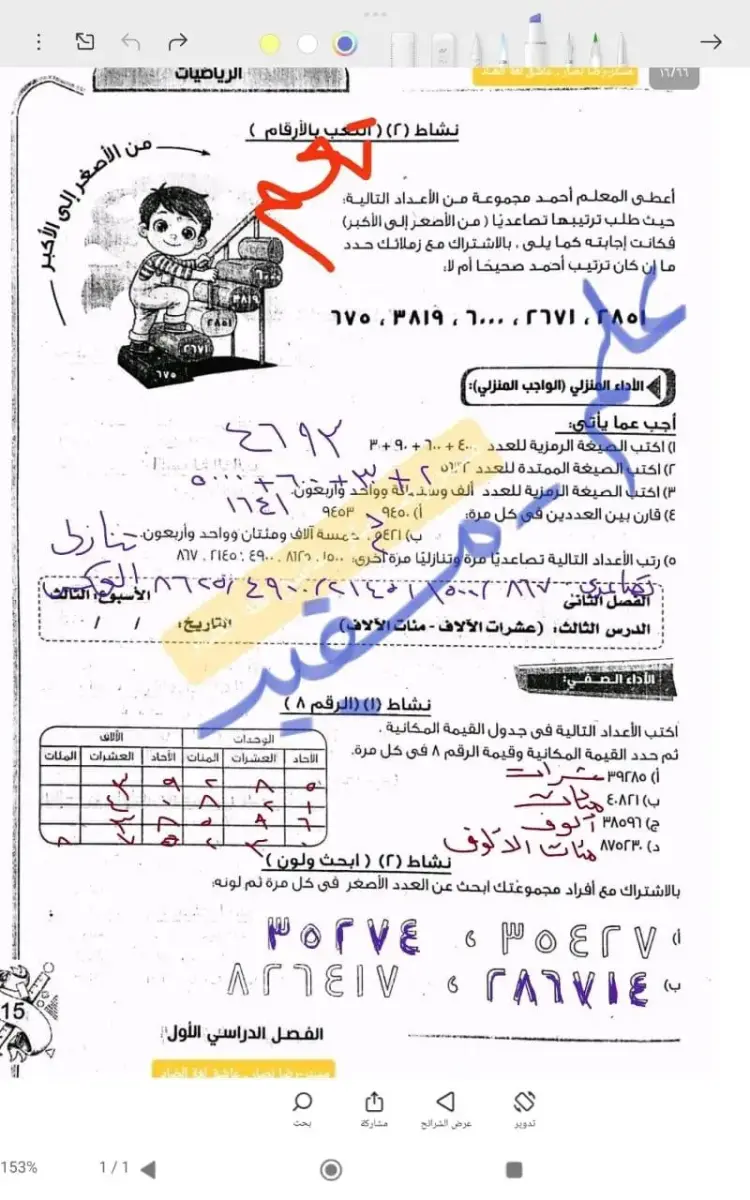 ١٦/٦٦
مستر-رضا نصار . عاشق لغة الضاد
الرياضيات
نشاط (٢) ( اللعب بالأرقام )
نعم
من الأصغر إلى الأكبر
أعطى المعلم أحمد مجموعة من الأعداد التالية:
حيث طلب ترتيبها تصاعديًا ( من الأصغر إلى الأكبر)
فكانت إجابته كما يلى ، بالاشتراك مع زملائك حدد
ما إن كان ترتيب أحمد صحيحًا أم لا:
٢٨٥١ ، ٢٦٧١ ، ٦٠٠٠ ، ٣٨١٩ ، ٦٧٥
٦٠٠٠
٣٨١٩
٢٨٥١
٢٦٧١
٦٧٥
الأداء المنزلي (الواجب المنزلي):
أجب عما يأتي:
١) اكتب الصيغة الرمزية للعدد ٤٠٠٠ + ٦٠٠ + ٩٠ + ٣
٤٦٩٣
٢) اكتب الصيغة الممتدة للعدد ٥٦٣٢
٥٠٠٠ + ٦٠٠ + ٣٠ + ٢
٣) اكتب الصيغة الرمزية للعدد ألف وستمائة وواحد وأربعون.
١٦٤١
٤) قارن بين العددين في كل مرة:
أ) ٩٤٥٠ ٩٤٥٣
ب) ٥٤٢١ خمسة آلاف ومئتان وواحد وأربعون.
٥) رتب الأعداد التالية تصاعديًا مرة وتنازليًا مرة أخرى:
٨٦٧
تصاعدي ٨٦٧
تنازلي
العكس
الفصل الثانى
الأسبوع: الثالث
الدرس الثالث: (عشرات الآلاف - مئات الآلاف)
التاريخ: / /
الأداء الصفي:
نشاط (١) (الرقم ٨ )
اكتب الأعداد التالية في جدول القيمة المكانية .
ثم حدد القيمة المكانية وقيمة الرقم ٨ في كل مرة.
أ) ٣٩٢٨٥ عشرات
ب) ٤٠٨٢١ مئات
ج) ٣٨٥٩٦ ألوف
د) ٨٧٥٢٣٠ مئات الالوف
الوحدات الألاف
الآحاد العشرات المئات الآحاد العشرات المئات
٥ ٨ ٢ ٩ ٣
١ ٢ ٨ ٠ ٤
٦ ٩ ٥ ٨ ٣
٠ ٣ ٢ ٥ ٧ ٨
نشاط (٢) ( ابحث ولون )
بالاشتراك مع أفراد مجموعتك ابحث عن العدد الأصغر فى كل مرة ثم لونه:
أ) ٣٥٤٢٧ ، ٣٥٢٧٤
ب) ٢٨٦٧١٤ ، ٨٢٦٤١٧
علم_مسفيد
15
الفصل الدراسي الأول
مستر-رضا نصار . عاشق لغة الضاد
تدوير
عرض الشرائح
مشاركة
بحث
153%
1 / 1